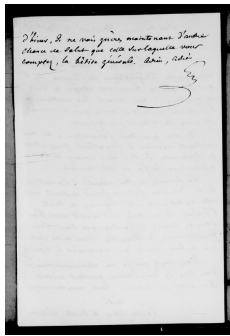 d'hiver. Je ne vois guères maintenant d'autre
chance de salut que celle sur laquelle vous
comptez, la bêtise générale. Adieu, adieu